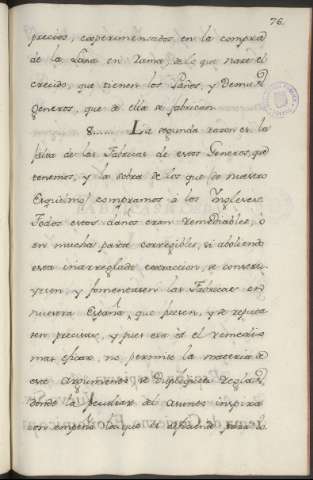 76.
precios, experimentados en la compra
de la Lana en rama, de lo que nace el
crecido, que tienen los Paños, y demas
Generos, que de ella se fabrican
8..... La segunda razon es la
falta de las Fabricas de estos Generos, que
tenemos, y la sobra de los que (de nuestro
Esquilmo) compramos a los Ingleses.
Todos estos daños eran remediables, ó
en mucha parte corregibles, si aboliendo
esta inarreglada extraccion, se constru
yesen, y fomentasen las Fabricas en
nuestra España, que piden, y se reputa
sen precisas, y pues era este el remedio
mas eficaz, no permite la materia de
este argumento se
donde la peculiar del asunto inspira
con empeño lo que